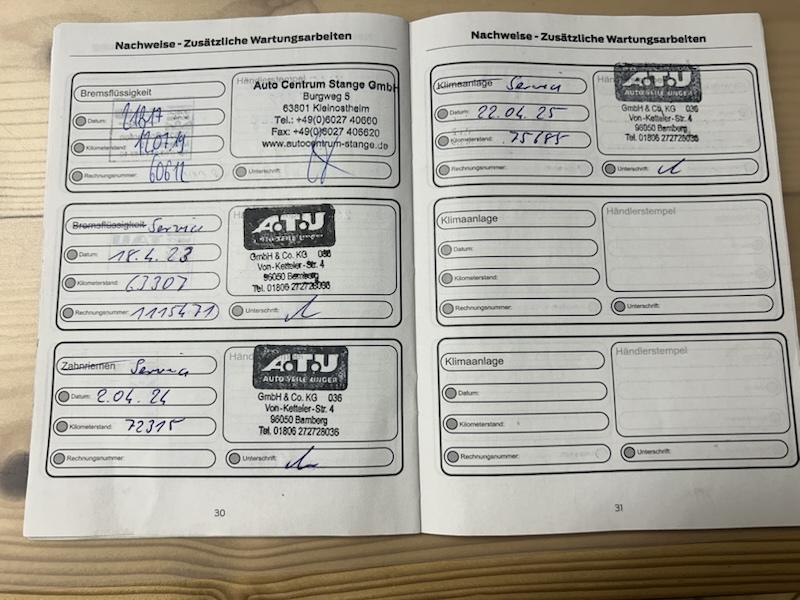 Nachweise - Zusätzliche Wartungsarbeiten
Bremsflüssigkeit
Datum:
Kilometerstand: 12.07.19
Rechnungsnummer: 60612
Händlerstempel
Auto Centrum Stange GmbH
Burgweg 5
63801 Kleinostheim
Tel.: +49(0)6027 40660
Fax: +49(0)6027 406620
www.autocentrum-stange.de
Unterschrift:
Bremsflüssigkeit Service
Datum: 18.4.23
Kilometerstand: 67307
Rechnungsnummer: 1115471
A.T.U
GmbH & Co. KG 036
Von-Ketteler-Str. 4
96050 Bamberg
Tel. 01806 272728036
Unterschrift:
Zahnriemen Service
Datum: 2.04.24
Kilometerstand: 72315
Rechnungsnummer:
A.T.U
AUTO TEILE UNGER
GmbH & Co. KG 036
Von-Ketteler-Str. 4
96050 Bamberg
Tel. 01806 272728036
Unterschrift:
30
Nachweise - Zusätzliche Wartungsarbeiten
Klimaanlage Service
Datum: 22.04.25
Kilometerstand: 75685
Rechnungsnummer:
A.T.U
AUTO TEILE UNGER
GmbH & Co. KG 036
Von-Ketteler-Str. 4
96050 Bamberg
Tel. 01806 272728036
Unterschrift:
Klimaanlage
Datum:
Kilometerstand:
Rechnungsnummer:
Händlerstempel
Unterschrift:
Klimaanlage
Datum:
Kilometerstand:
Rechnungsnummer:
Händlerstempel
Unterschrift:
31